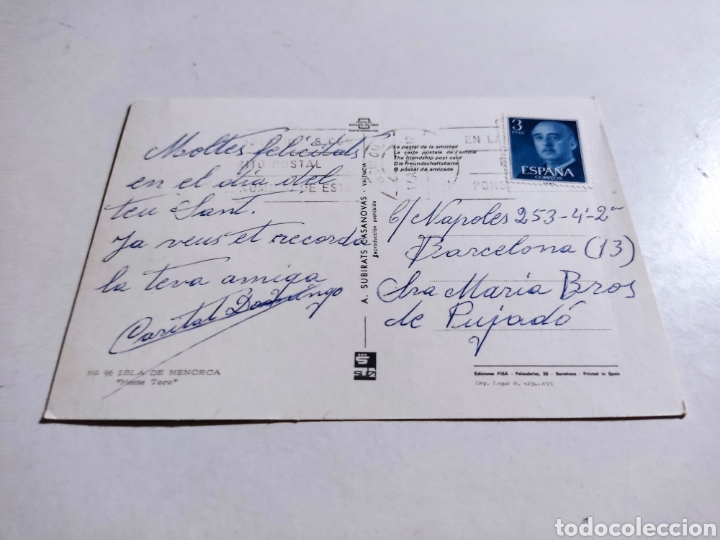 Moltes felicitats
en el dia del
teu Sant.
Ja veus et recorda
la teva amiga
Caritat Domingo
96 ISLA DE MENORCA
"Monte Toro"
A. SUBIRATS CASANOVAS - VALENCIA
Reproducción prohibida
La postal de la amistad
La carte postale de l'amitié
The friendship post card
Die Freundschaftskarte
O postal da amizade
EN LA
3
PTAS
ESPAÑA
CORREOS
C/ Napoles 253-4-2ª
Barcelona (13)
Sra Maria Bros
de Pujadó
Ediciones FISA - Palaudarias, 26 - Barcelona Printed in Spain
Dep. Legal B.
todocoleccion